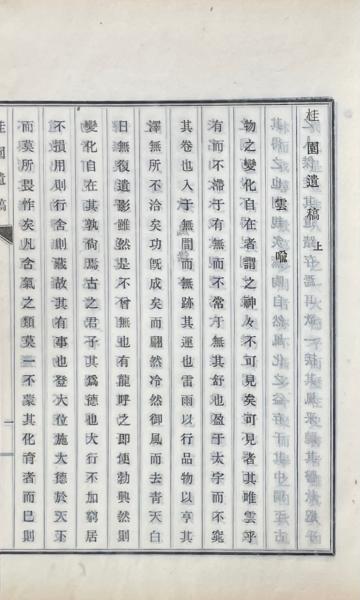 桂園遺稿上
雲喩
物之變化自在者謂之神々不可見矣可見者其唯雲乎
有而不滯于有無而不常于無其舒也盈于太宇而不窕
其卷也入于無間而無跡其運也雷雨以行品物以亨其
澤無所不洽矣功既成矣而翩然冷然御風而去青天白
日無復遺影雖然是不曾無也有龍呼之即便勃興然則
變化自在其孰尙焉古之君子其爲德也大行不加窮居
不損用則行舍則藏故其有事也登大位施大德於天下
而莫所畏怍矣凡含氣之類莫一不蒙其化育者而已則
桂園遺稿